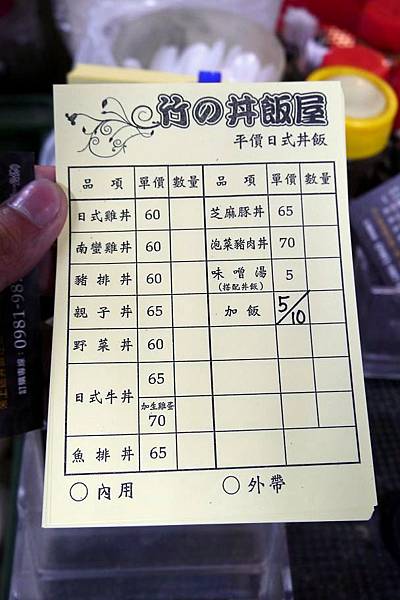 竹の丼飯屋
平價日式丼飯
品項 單價 數量 品項 單價 數量
日式雞丼 60 芝麻豚丼 65
南蠻雞丼 60 泡菜豬肉丼 70
豬排丼 60 味噌湯 5
(搭配丼飯)
親子丼 65 加飯 5/10
野菜丼 60
日式牛丼 65
加生雞蛋
70
魚排丼 65
○內用 ○外帶
0981-98